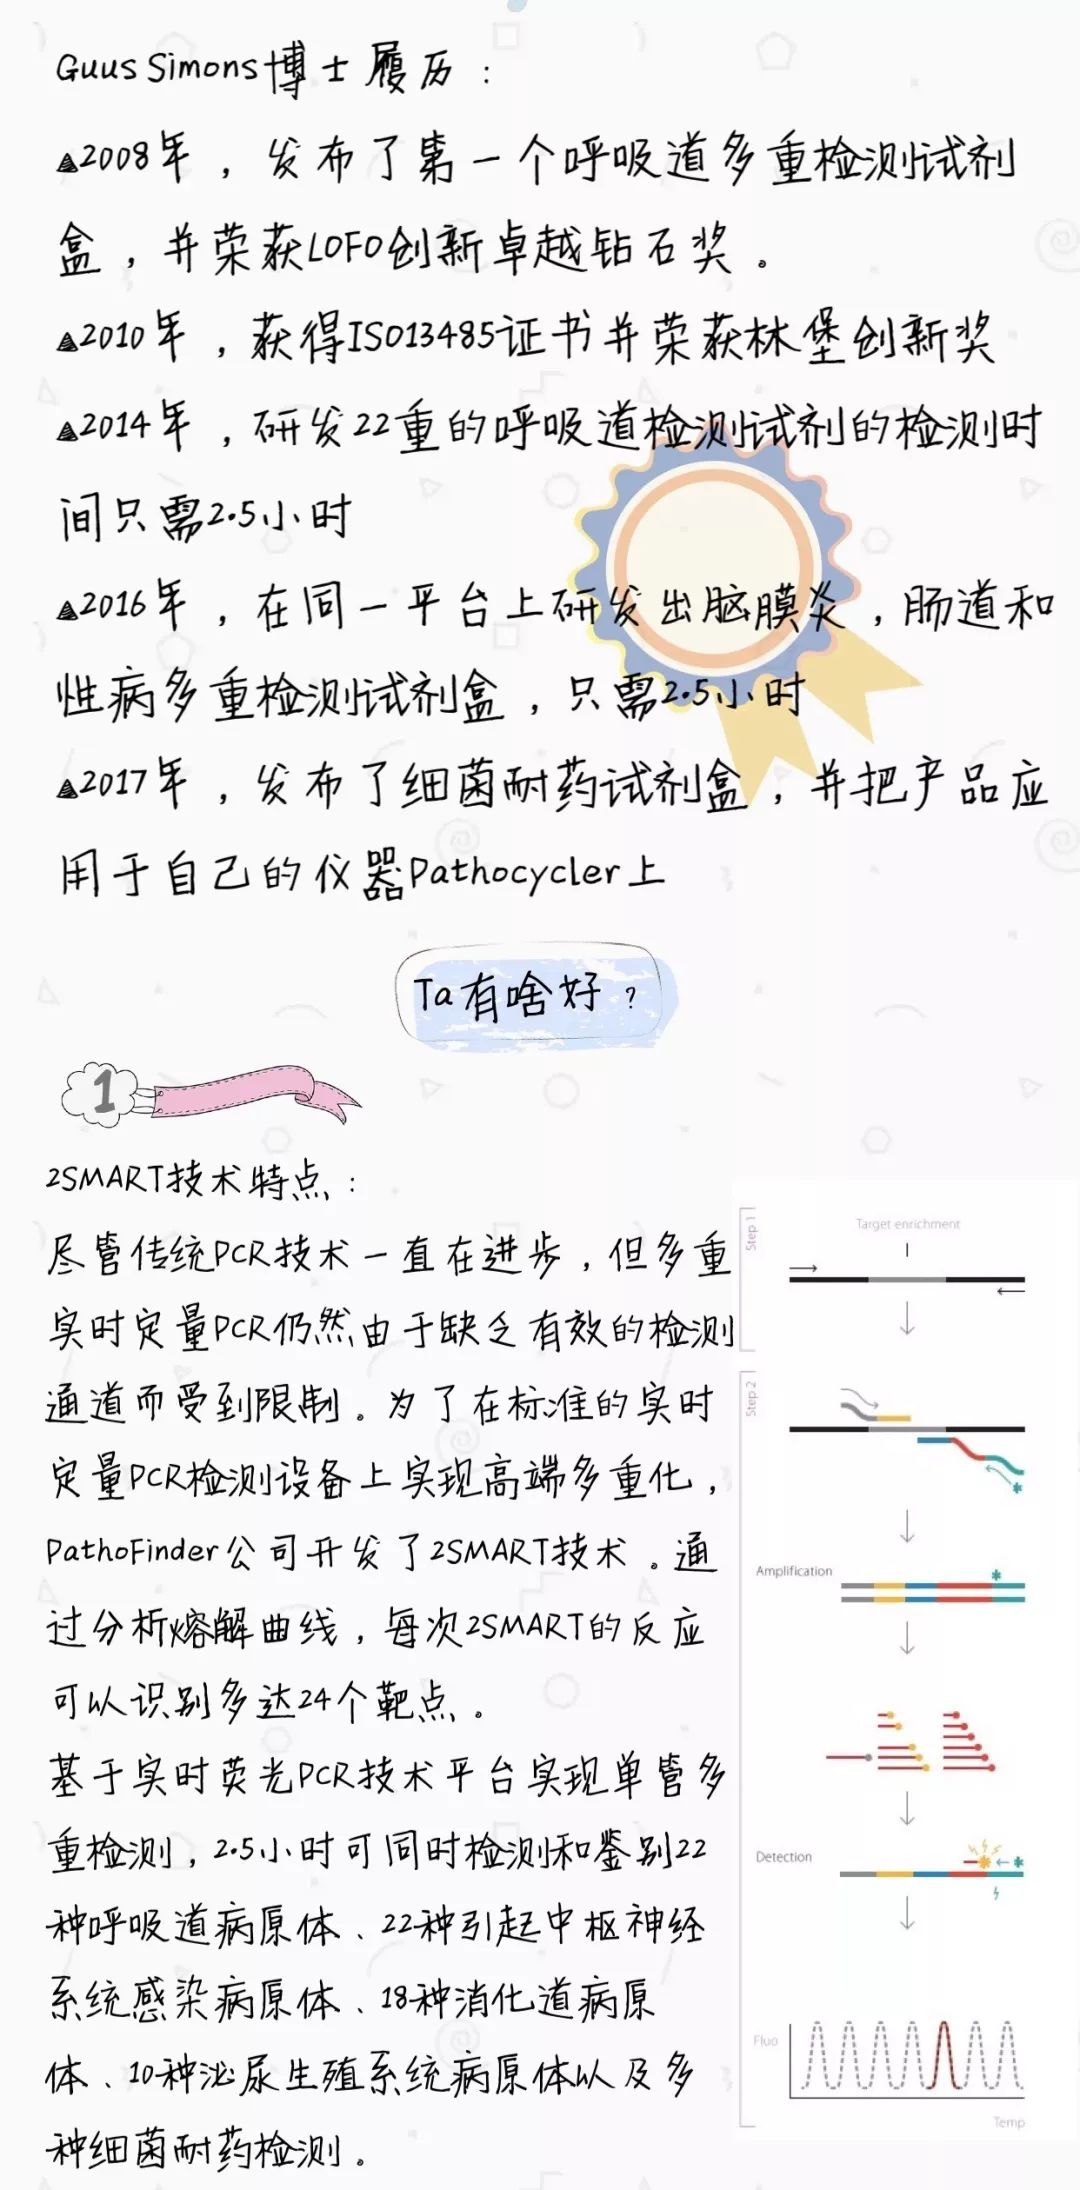 Guus Simons博士履历：
2008年，发布了第一个呼吸道多重检测试剂
盒，并荣获LOFO创新卓越钻石奖。
2010年，获得ISO13485证书并荣获林堡创新奖
2014年，研发22重的呼吸道检测试剂的检测时
间只需2.5小时
2016年，在同一平台上研发出脑膜炎，肠道和
性病多重检测试剂盒，只需2.5小时
2017年，发布了细菌耐药试剂盒，并把产品应
用于自己的仪器Pathocycler上
Ta有啥好？
1
2SMART技术特点：
尽管传统PCR技术一直在进步，但多重
实时定量PCR仍然由于缺乏有效的检测
通道而受到限制。为了在标准的实时
定量PCR检测设备上实现高端多重化，
PathoFinder公司开发了2SMART技术。通
过分析熔解曲线，每次2SMART的反应
可以识别多达24个靶点。
基于实时荧光PCR技术平台实现单管多
重检测，2.5小时可同时检测和鉴别22
种呼吸道病原体、22种引起中枢神经
系统感染病原体、18种消化道病原
体、10种泌尿生殖系统病原体以及多
种细菌耐药检测。
Step 1
Target enrichment
Step 2
Amplification
Detection
Fluo
Temp